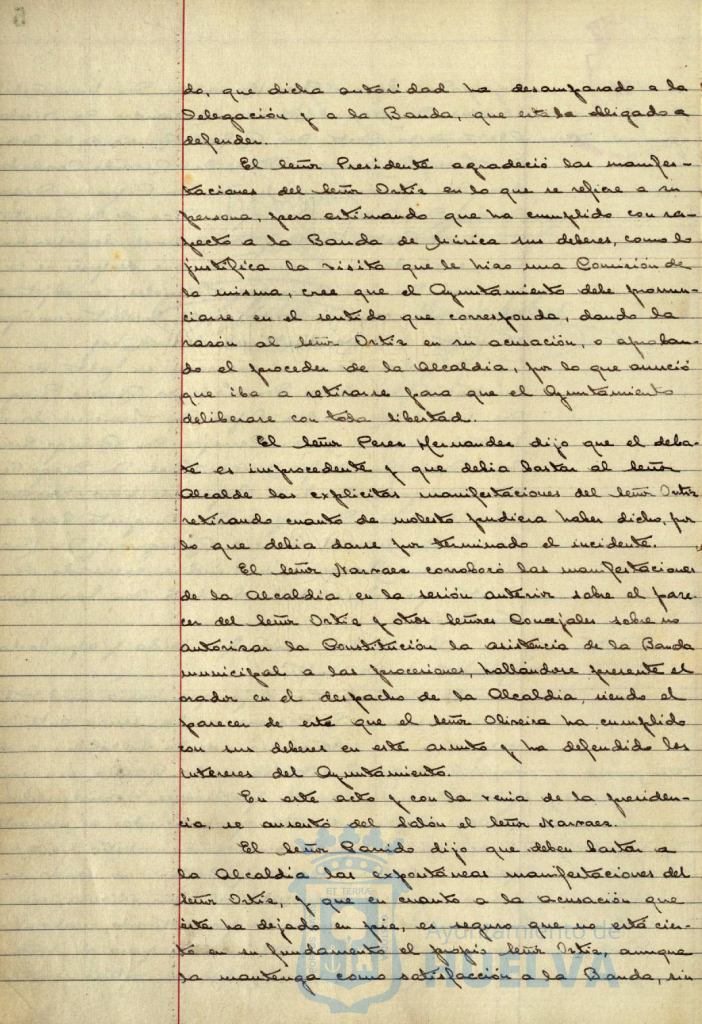 do, que dicha autoridad ha desamparado a la
Delegación y a la Banda, que está obligado a
defender.
El Señor Presidente agradeció las manifes-
taciones del Señor Ortiz en lo que se refiere a su
persona, pero estimando que ha cumplido con res-
pecto a la Banda de Música sus deberes, como lo
justifica la visita que le hizo una Comisión de
la misma, cree que el Ayuntamiento debe pronun-
ciarse en el sentido que corresponda, dando la
razón al Señor Ortiz en su acusación, o aproban-
do el proceder de la Alcaldia, por lo que anunció
que iba a retirarse para que el Ayuntamiento
deliberase con toda libertad.
El Señor Perez Hernandez dijo que el deba-
te es improcedente y que debia bastar al Señor
Alcalde las explicitas manifestaciones del Señor Ortiz
retirando cuanto de molesto pudiera haber dicho, por
lo que debia darse por terminado el incidente.
El Señor Narvaez corroboró las manifestaciones
de la Alcaldia en la sesión anterior sobre el pare-
cer del Señor Ortiz y otros Señores Concejales sobre no
autorizar la Constitución la asistencia de la Banda
municipal a las procesiones, hallándose presente el
orador en el despacho de la Alcaldia, siendo el
parecer de este que el Señor Oliveira ha cumplido
con sus deberes en este asunto y ha defendido los
intereses del Ayuntamiento.
En este acto y con la venia de la presiden-
cia, se ausentó del Salón el Señor Narvaez.
El Señor Garrido dijo que deben bastar a
la Alcaldia las expontáneas manifestaciones del
Señor Ortiz, y que en cuanto a la acusación que
éste ha dejado en pie, es seguro que no está cier-
to en su fundamento el propio Señor Ortiz, aunque
la mantenga como satisfacción a la Banda, sin
ET TERRÆ
Ayuntamiento de
HUELVA